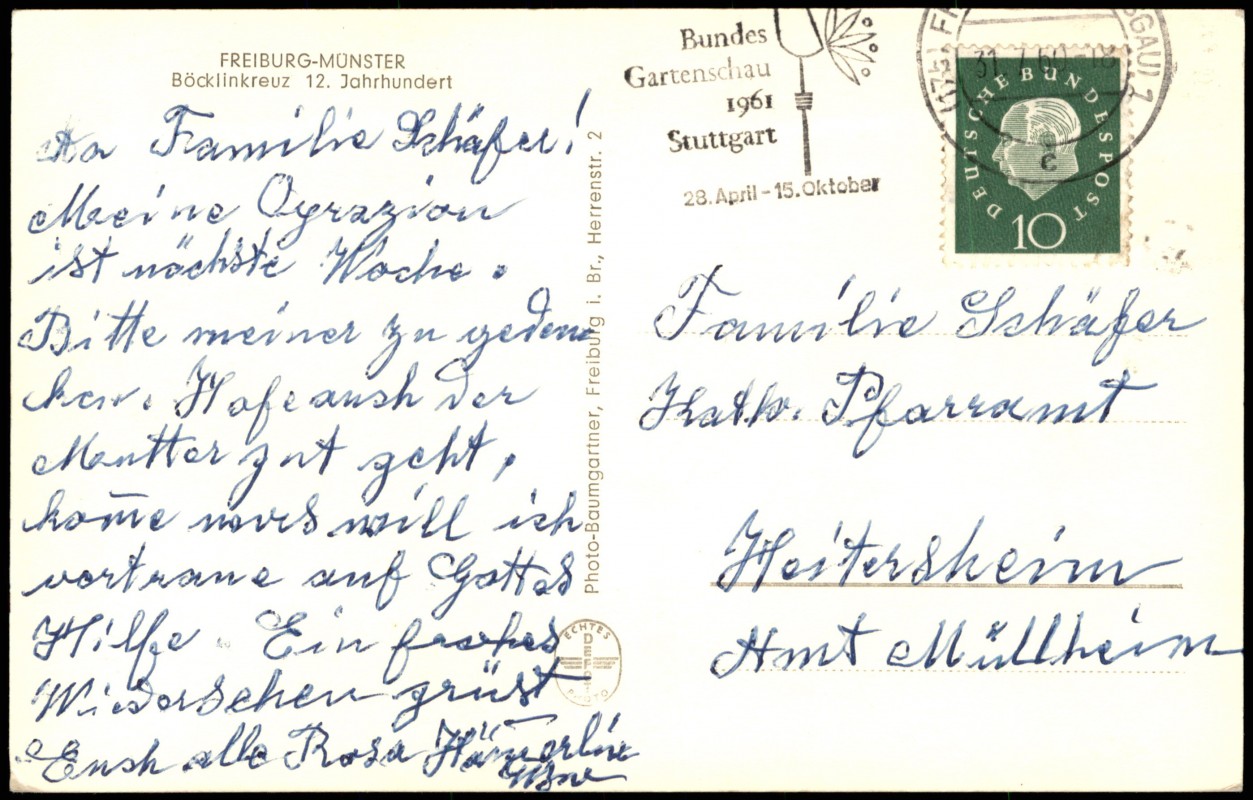 FREIBURG-MÜNSTER
Böcklinkreuz 12. Jahrhundert
An Familie Schäfer!
Meine Oprazion
ist nächste Woche.
Bitte meiner zu geden
ken. Hofe aush der
Mutter gut geht,
kom̄e was will ich
vertraue auf Gottes
Hilfe. Ein frohes
Wiedersehen grüst
Eush alle Rosa
Photo-Baumgartner, Freiburg i. Br., Herrenstr. 2
ECHTES
PHOTO
Bundes
Gartenschau
1961
Stuttgart
28. April - 15. Oktober
31.7.60-18
DEUTSCHE BUNDESPOST
10
Familie Schäfer
Kath. Pfarramt
Heitersheim
Amt Müllheim